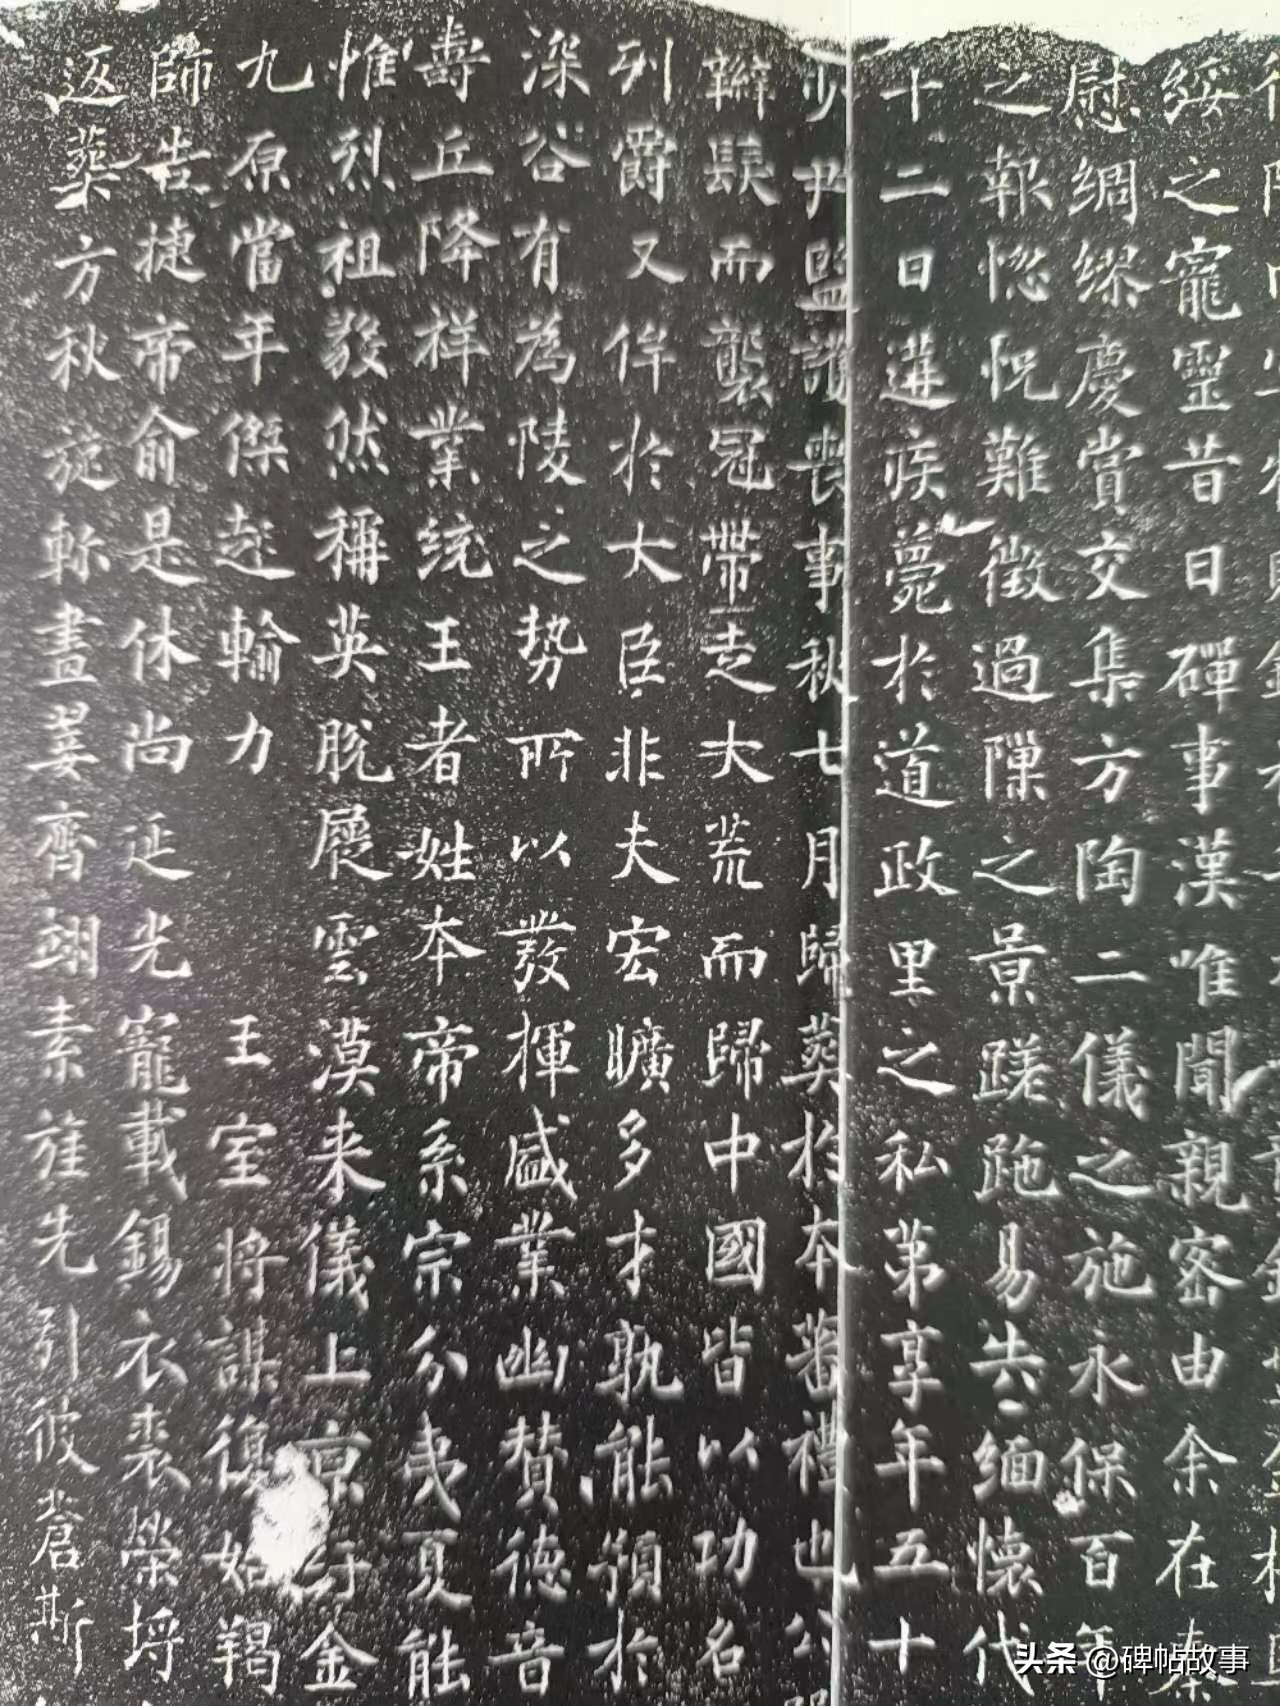 綏之寵靈昔日磾事漢唯聞親密由余在秦
慰綢繆慶賞交集方陶二儀之施永保百年
之報惚怳難徵過隟之景蹉跎易共緬懷代
十二日遘疾薨於道政里之私第享年五十
少尹監護喪事秋七月歸葬於本蕃禮也公
辮髮而襲冠帶走大荒而歸中國皆以功名
列爵又侔於大臣非夫宏曠多才孰能預於
深谷有為陵之勢所以發揮盛業幽贊德音
壽丘降祥業統王者姓本帝系宗分夷夏能
惟烈祖毅然稱英脫屣雲漠来儀上京行金
九原當年傑起輸力 王室將謀復始羯
師告捷帝俞是休尚延光寵載錫衣裘榮埒
返葬方秋旋軫畫翣齊翊素旌先引彼蒼斯
头条 @碑帖故事